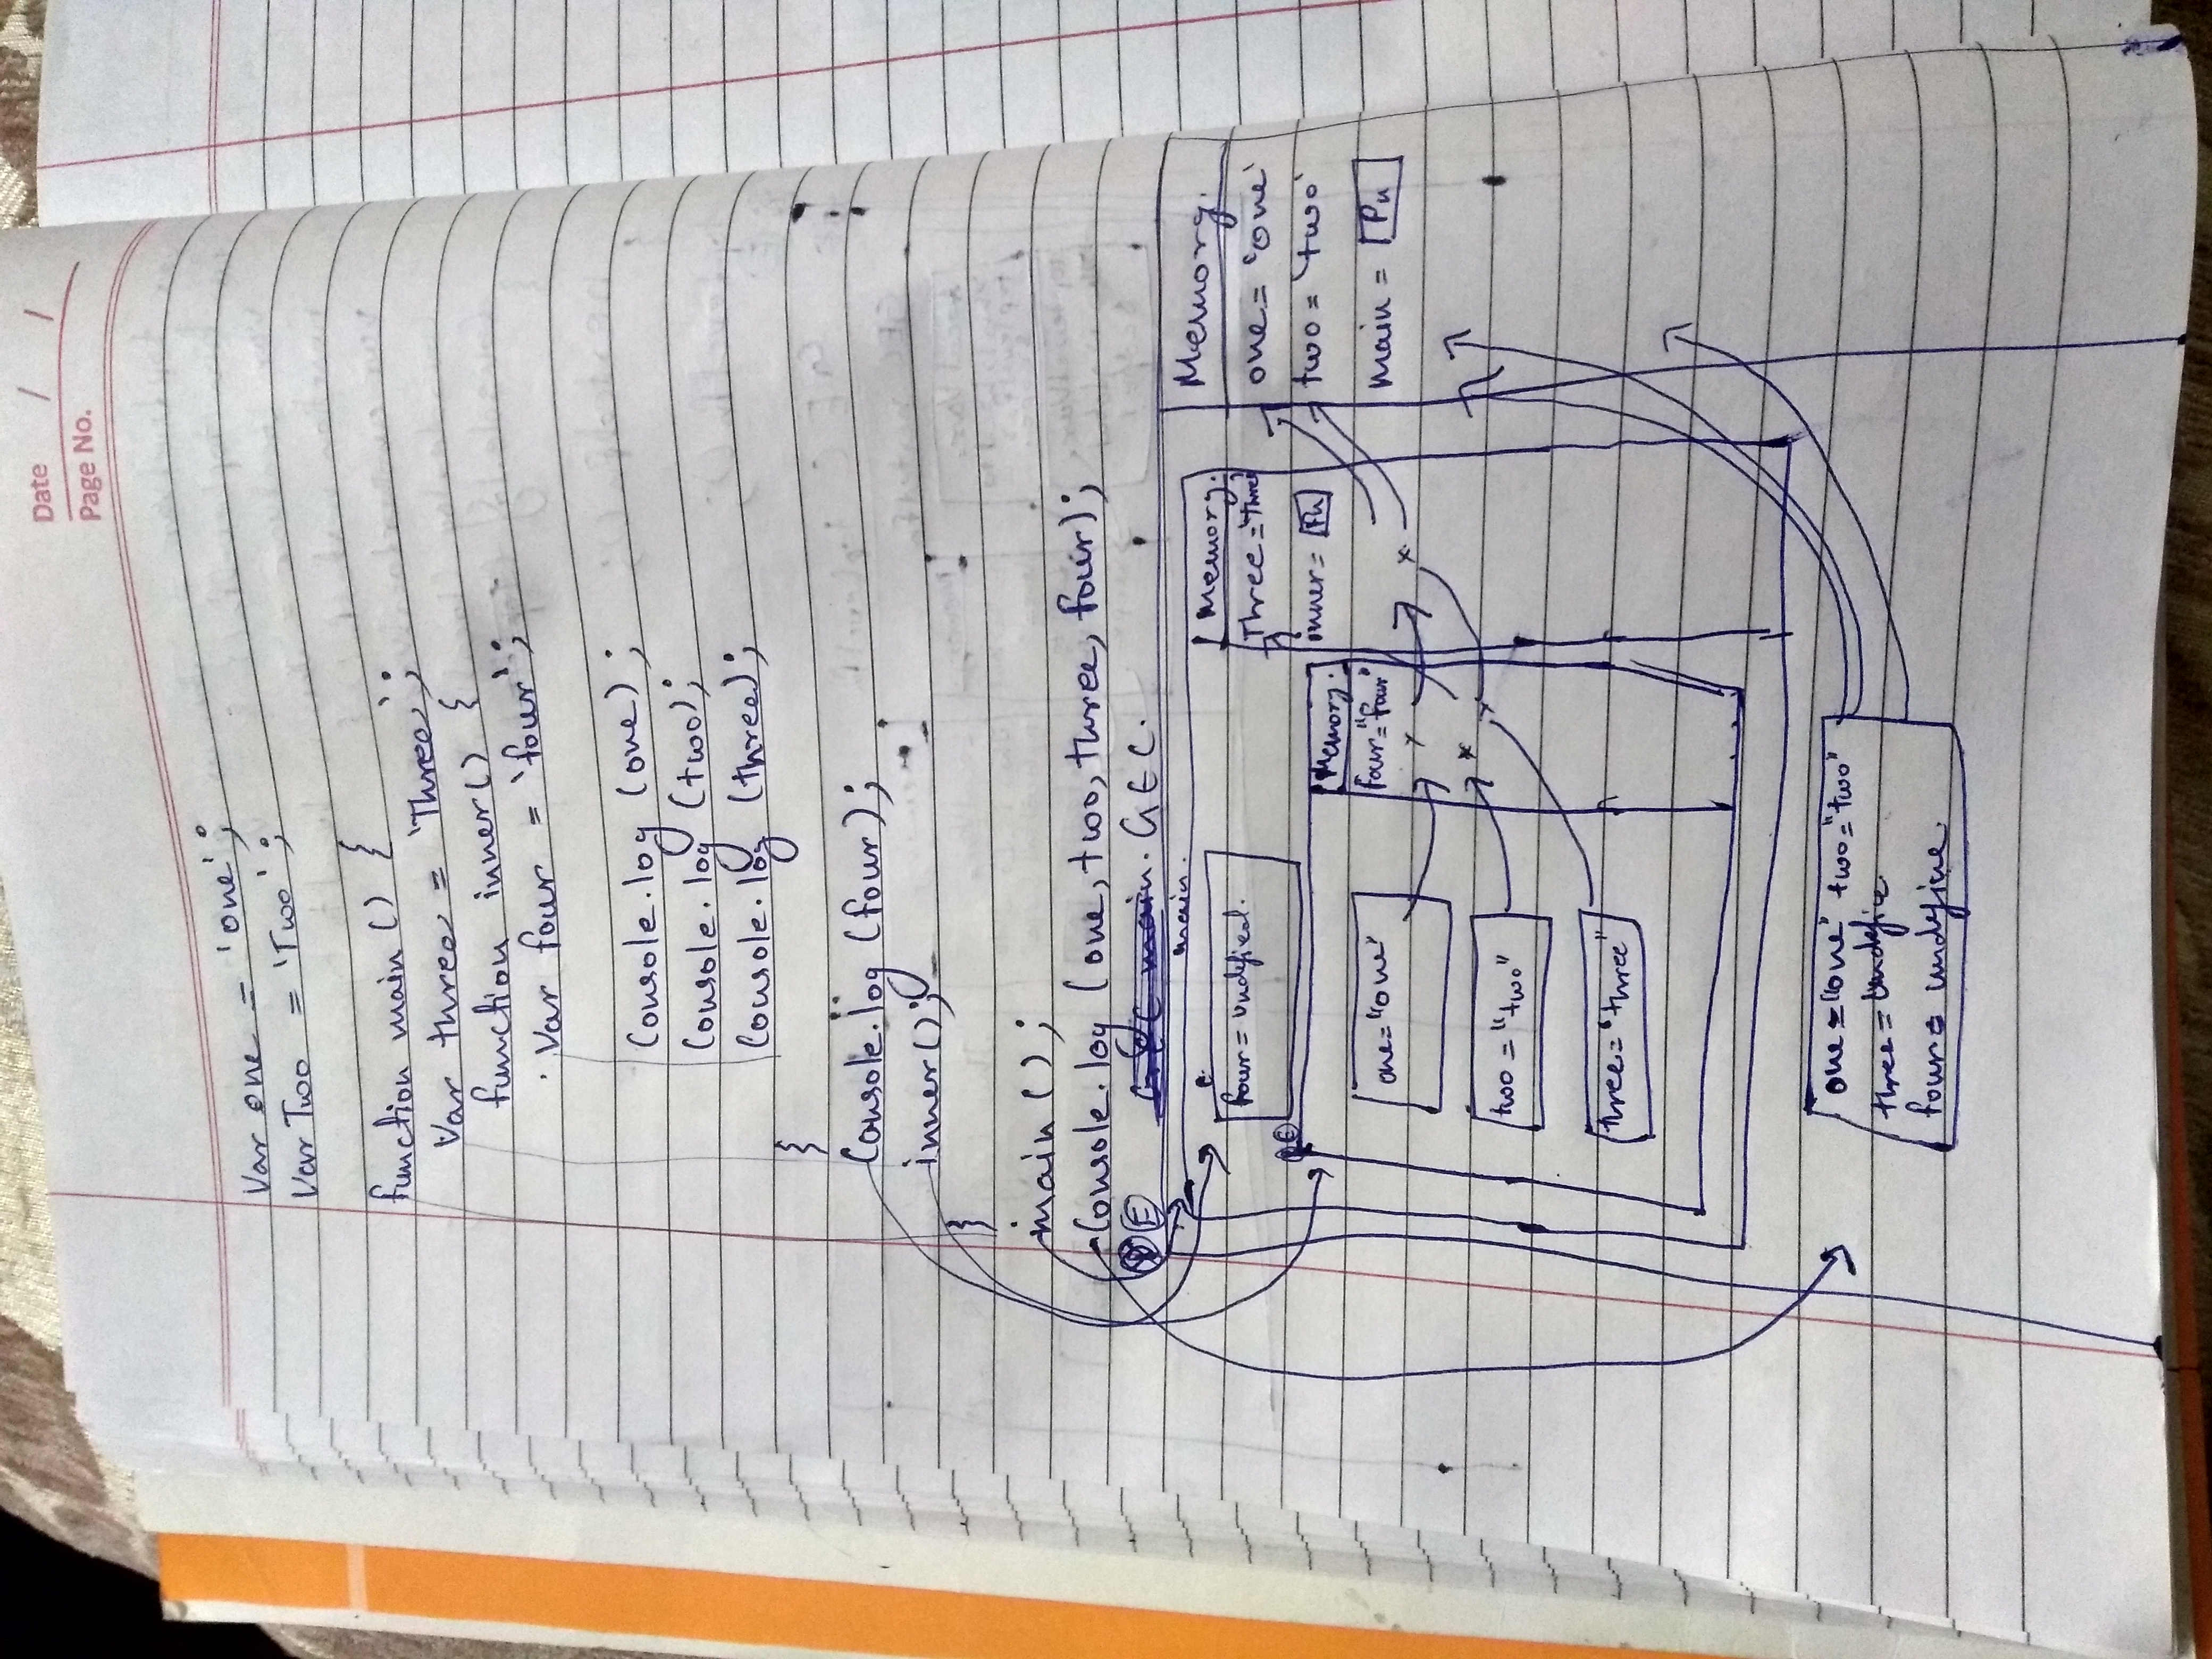 Date / /
Page No.
Var one = 'one';
Var Two = 'Two';
function main () {
Var three = 'Three';
function inner() {
Var four = 'four';
Console.log (one);
Console.log (two);
Console.log (three);
}
Console.log (four);
inner();
}
main ();
Console.log (one, two, three, four);
E GEC main. GEC.
main.
Memory.
four = undefied.
Memory.
Three = 'Three'
one = 'one'
E
inner = Fn
two = 'two'
Memory.
four = "four"
main = Fn
one = "one"
two = "two"
three = "three"
one = "one" two = "two"
three = Undefine
four = undefine.